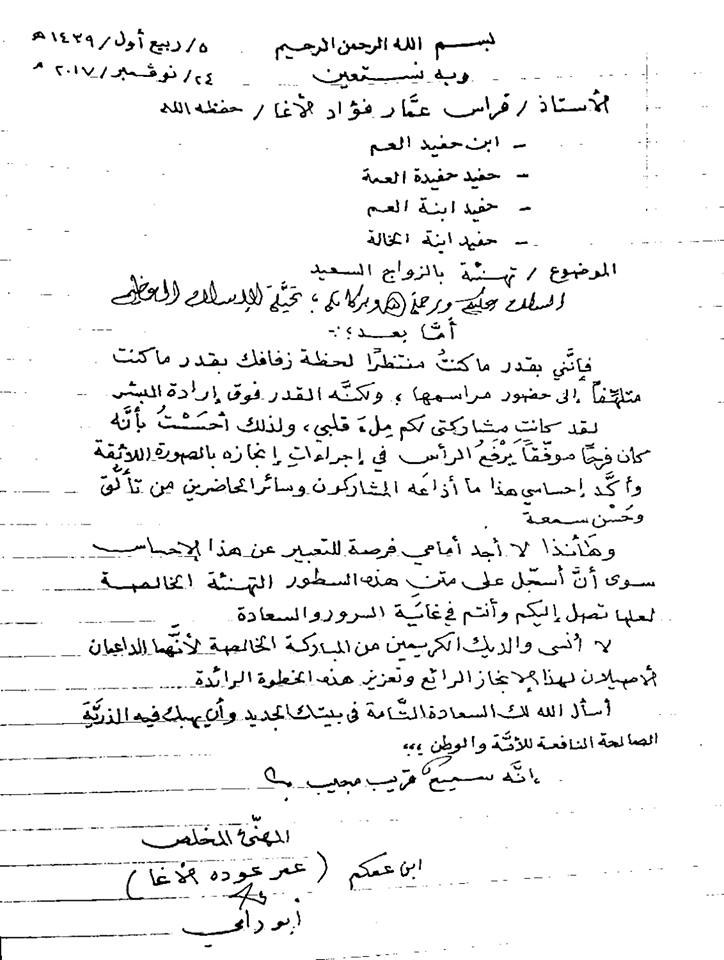 بسم الله الرحمن الرحيم
٥/ربيع أول/١٤٣٩ه
وبه نستعين
٢٤/نوفمبر/٢٠١٧م
الأستاذ / فراس عمَّار فؤاد الأغا / حفظه الله
- ابن حفيد العم
- حفيد حفيدة العمة
- حفيد ابنة العم
- حفيد ابنة الخالة
الموضوع / تهنئة بالزواج السعيد
السلام عليكم ورحمة الله وبركاته ؛ تحيَّة الإسلام العظيم
أمَّا بعد ؛ ..
فإنَّني بقدر ما كنتُ منتظرًا لحظة زفافك بقدر ما كنت
متلهِّفاً إلى حضور مراسمها ، ولكنَّه القدر فوق إرادة البشر
لقد كانت مشاركتي لكم مِلءَ قلبي ، ولذلك أحسَسْتُ بأنَّه
كان فرحًا موفَّقاً يَرْفَعُ الرأس في إجراءاتِ إنجازه بالصورة اللائقة
وأكَّد إحساسي هذا ما أذاعه المشاركون وسائر الحاضرين من تألُّق
وحُسْن سمعة
وهأنذا لا أجد أمامي فرصة للتعبير عن هذا الإحساس
سوى أنْ أسجّل على متن هذه السطور التهنئة الخالصة
لعلها تصل إليكم وأنتم في غاية السرور والسعادة
لا أنسى والديك الكريمين من المباركة الخالصة لأنَّهما الداعمان
الأصيلان لهذا الإنجاز الرائع وتعزيز هذه الخطوة الرائدة
أسأل الله لك السعادة التَّامة في بيتك الجديد وأن يهبك فيه الذريَّة
الصالحة النافعة للأمَّة والوطن ،،،
إنَّه سميعٌ قريب مجيب
المهنّئ المخلص
ابن عمكم ( عمر عوده الأغا )
أبو رامي